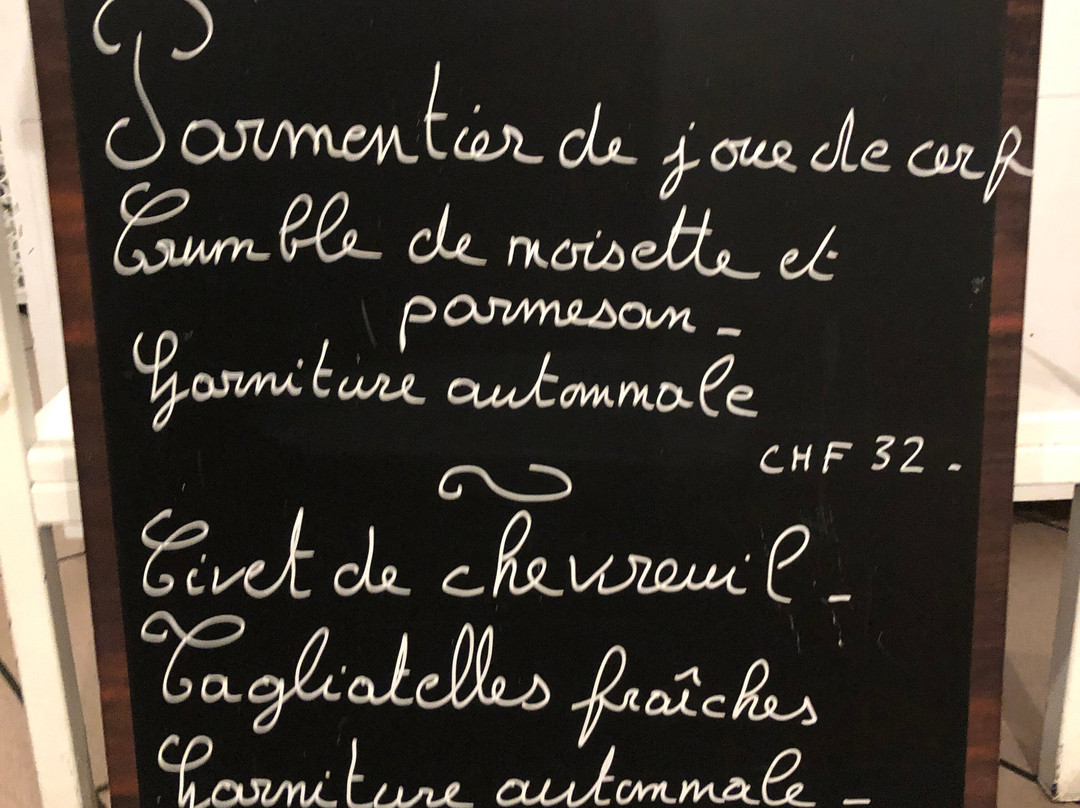 Parmentier de joue de cerf
Crumble de noisette et
parmesan -
Garniture automnale
CHF 32.-
Civet de chevreuil -
Tagliatelles fraîches
Garniture automnale -